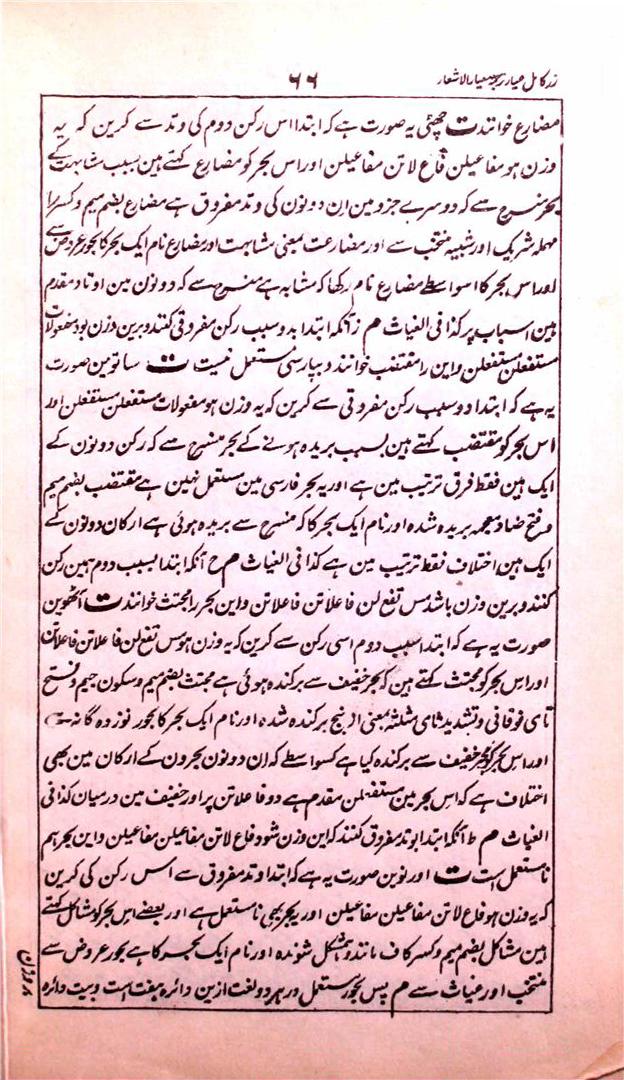 زر کامل عیار ترجمہ معیار الاشعار
۶۶
مضارع خوانند ت چھٹی یہ صورت ہے کہ ابتدا اس رکن دوم کی وتد سے کرین کہ یہ
وزن ہو مفاعیلن فاع لاتن مفاعیلن اور اس بحر کو مضارع کہتے ہین بسبب مشابہت کے
بحر منسرح سے کہ دوسرے جزو مین ان دونون کی وتد مفروق ہے مضارع بضم میم و کسر را
مہملہ شریک اور شبیہ منتخب سے اور مضارعت بمعنی مشابہت اور مضارع نام ایک بحر کا بحور عروض سے
اور اس بحر کا اسواسطے مضارع نام رکھا کہ مشابہ ہے منسرح سے کہ دونون مین اوتاد مقدم
ہین اسباب پر کذا فی الغیاث م ز آنکہ ابتدا بدو سبب رکن مفروقی کنند و برین وزن بود مفعولات
مستفعلن مستفعلن و این را مقتضب خوانند و بپارسی مستعمل نیست ت ساتوین صورت
یہ ہے کہ ابتدا دو سبب رکن مفروقی سے کرین کہ یہ وزن ہو مفعولات مستفعلن مستفعلن اور
اس بحر کو مقتضب کہتے ہین بسبب بریدہ ہونے کے بحر منسرح سے کہ رکن دونون کے
ایک ہین فقط فرق ترتیب مین ہے اور یہ بحر فارسی مین مستعمل نہین ہے مقتضب بضم میم
و فتح ضاد معجمہ بریدہ شدہ اور نام ایک بحر کا کہ منسرح سے بریدہ ہوئی ہے ارکان دونون کے
ایک ہین اختلاف فقط ترتیب مین ہے کذا فی الغیاث م ح آنکہ ابتدا بسبب دوم ہمین رکن
کنند و برین وزن باشد مس تفع لن فاعلاتن فاعلاتن و این بحر را مجتث خوانند ت آٹھوین
صورت یہ ہے کہ ابتدا سبب دوم اسی رکن سے کرین کہ یہ وزن ہو مس تفع لن فاعلاتن فاعلاتن
اور اس بحر کو مجتث کہتے ہین کہ بحر خفیف سے برکندہ ہوئی ہے مجتث بضم میم و سکون جیم و فتح
تای فوقانی و تشدید ثای مثلثہ بمعنی از بیخ برکندہ شدہ اور نام ایک بحر کا بحور نوزدہ گانہ سے
اور اس بحر کو بحر خفیف سے برکندہ کیا ہے کسواسطے کہ ان دونون بحرون کے ارکان مین بھی
اختلاف ہے کہ اس بحر مین مستفعلن مقدم ہے دو فاعلاتن پر اور خفیف مین درمیان کذا فی
الغیاث م ط آنکہ ابتدا بوتد مفروق کنند کہ این وزن شود فاع لاتن مفاعیلن مفاعیلن و این بحر ہم
نامستعمل است ت اور نوین صورت یہ ہے کہ ابتدا وتد مفروق سے اس رکن کی کرین
کہ یہ وزن ہو فاع لاتن مفاعیلن مفاعیلن اور یہ بحر بھی نامستعمل ہے اور بعضے اس بحر کو مشاکل کہتے
ہین مشاکل بضم میم و کسر کاف مانند و ہمشکل شوندہ اور نام ایک بحر کا ہے بحور عروض سے
منتخب اور غیاث سے م پس بحور مستعمل در ہر دو لغت ازین دائرہ ہفت است و بیت دائرہ